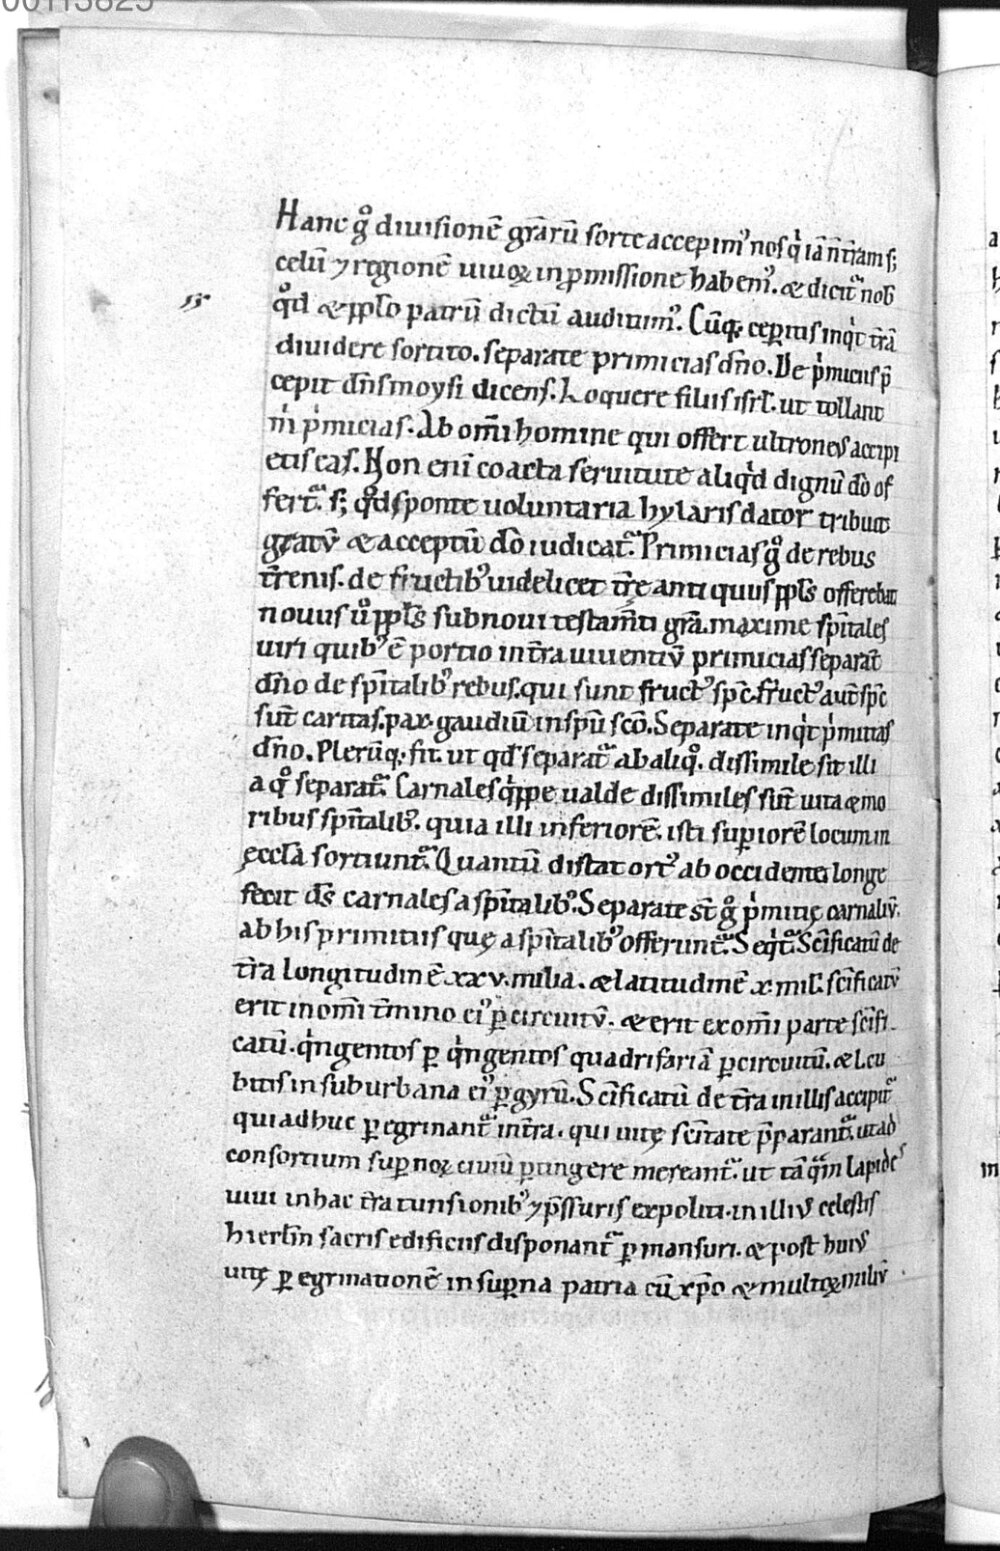 00113825
Hanc gͦ diuisionē gr̄arū sorte accepimꝰ nos qͥ iā n̄ t̄ram s;
celū ⁊ regionē uiuoꝝ in ꝓmissione habemꝰ. & dicit᷑ nob̄
qͦd & pplo patrū dictū auditimꝰ. Cūq; ceperitis inqͥt t̄rā
diuidere sortito. separate primicias dn̄o. De pͥmiciis p̄
cepit dn̄s moysi dicens. Loquere filiis isrl̄. ut tollant
m̄ pͥmicias. Ab om̄i homine qui offert ultroneus accipi
etis eas. Non eni coacta seruitute aliqͥd dignū dō of
fert᷑. s; qͦd sponte uoluntaria hylaris dator tribuit
gratū & acceptū dō iudicat᷑. Primicias gͦ de rebus
t̄renis. de fructibꝰ uidelicet t̄rę antiquus ppl̄s offerebat
nouus ū ppl̄s sub noui testam̄ti gr̄a. maxime sp̄itales
uiri quibꝰ ē portio in t̄ra uiuentiū primicias separat
dn̄o de sp̄italibꝰ rebus. qui sunt fructꝰ sp̄c. fructꝰ aut̄ sp̄c
sūt caritas. pax. gaudiū in sp̄u scō. Separate inqͥt pͥmitias
dn̄o. Plerūq; fit. ut qd̄ separat᷑ ab aliqͦ. dissimile sit illi
a qͦ separat᷑. Carnales qͥppe ualde dissimiles sūt uita & mo
ribus sp̄italibꝰ. quia illi inferiorē. isti supͥorē locum in
ęccl̄a sortiunt᷑. Quantū distat ortꝰ ab occidente longe
fecit ds̄ carnales a sp̄italibꝰ. Separatę st̄ gͦ pͥmitię carnaliū.
ab his primitiis quę a sp̄italibꝰ offerunt᷑. Seqͥt᷑. Scīficatū de
t̄ra longitudinē xxv. milia. & latitudinē x. mil̄. scīficatū
erit in om̄i t̄mino eiꝰ ꝑ circuitū. & erit ex om̄i parte scīfi
catū. qͥngentos ꝑ qͥngentos quadrifariā ꝑ circuitū. & l cu
bitis in suburbana eiꝰ ꝑ gyrū. Scīficatū de t̄ra in illis accipit᷑
qui adhuc ꝑegrinant᷑ in t̄ra. qui uitę scītate p̄parant᷑. ut ad
consortium supnoꝝ ciuiū ꝑtingere mereant᷑. ut tāqͣm lapides
uiui in hac t̄ra tunsionibꝰ ⁊ p̄ssuris expoliti. in illiꝰ celestis
hierlm̄ sacris edificiis disponant᷑ ꝑmansuri. & post huiꝰ
uitę ꝑegrinationē in supna patria cū xp̄o & multoꝝ miliū